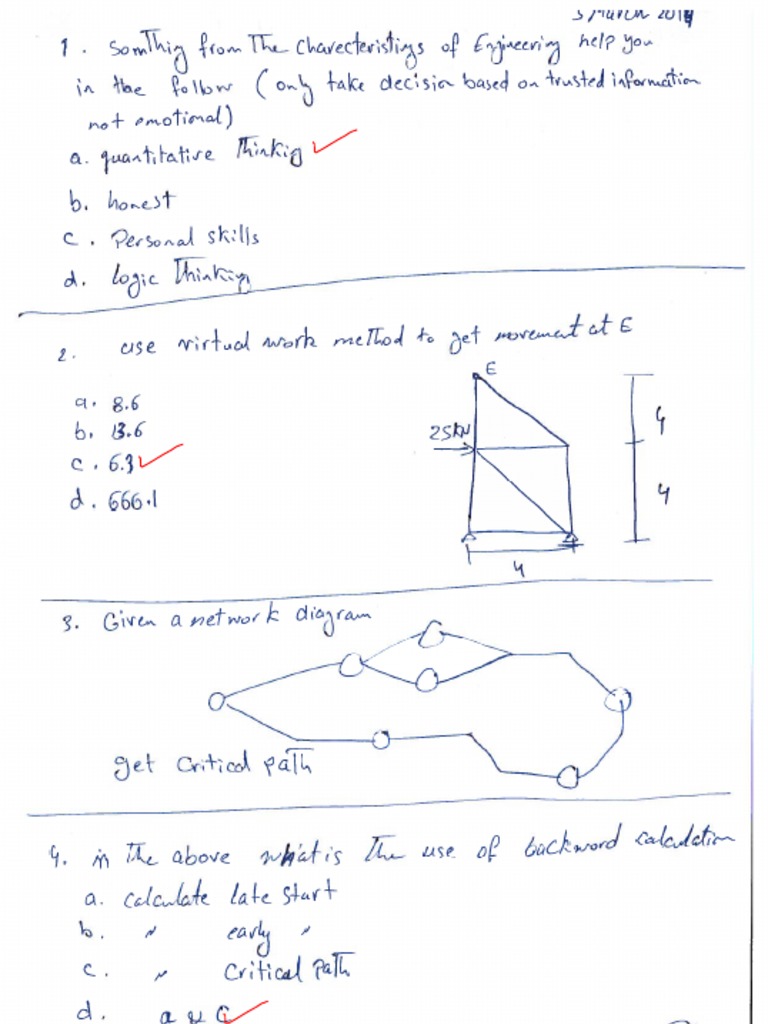 5 March 2014
1. Somthing from The charecteristings of Engineering help you
in the follow (only take decision based on trusted information
not emotional)
a. quantitative Thinkig
b. honest
c. Personal skills
d. logic Thinking
2. use virtual work method to get movement at E
a. 8.6
b. 13.6
c. 6.3
d. 666.1
E
25kN
4
4
4
3. Given a network diagram
get critical path
4. in The above what is The use of backword calculation
a. calculate late start
b. " early "
c. " Critical Path
d. a & c